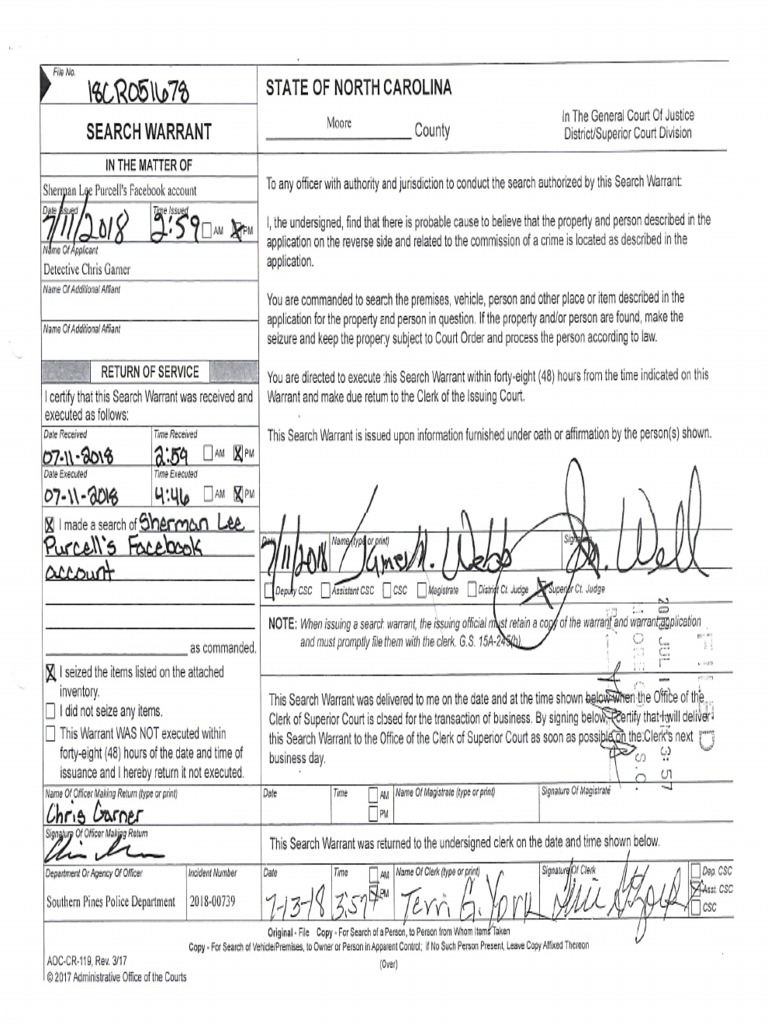 File No.
18CR051678
SEARCH WARRANT
IN THE MATTER OF
Sherman Lee Purcell's Facebook account
Date Issued Time Issued
7/11/2018 2:59 AM PM
Name Of Applicant
Detective Chris Garner
Name Of Additional Affiant
Name Of Additional Affiant
RETURN OF SERVICE
I certify that this Search Warrant was received and
executed as follows:
Date Received Time Received
07-11-2018 2:59 AM PM
Date Executed Time Executed
07-11-2018 4:46 AM PM
I made a search of Sherman Lee
Purcell's Facebook
account
as commanded.
I seized the items listed on the attached
inventory.
I did not seize any items.
This Warrant WAS NOT executed within
forty-eight (48) hours of the date and time of
issuance and I hereby return it not executed.
Name Of Officer Making Return (type or print)
Chris Garner
Signature Of Officer Making Return
Department Or Agency Of Officer Incident Number
Southern Pines Police Department 2018-00739
STATE OF NORTH CAROLINA
Moore County
In The General Court Of Justice
District/Superior Court Division
To any officer with authority and jurisdiction to conduct the search authorized by this Search Warrant:
I, the undersigned, find that there is probable cause to believe that the property and person described in the
application on the reverse side and related to the commission of a crime is located as described in the
application.
You are commanded to search the premises, vehicle, person and other place or item described in the
application for the property and person in question. If the property and/or person are found, make the
seizure and keep the property subject to Court Order and process the person according to law.
You are directed to execute this Search Warrant within forty-eight (48) hours from the time indicated on this
Warrant and make due return to the Clerk of the Issuing Court.
This Search Warrant is issued upon information furnished under oath or affirmation by the person(s) shown.
Date Name (type or print) Signature
7/11/2018 James M. Webb
Deputy CSC Assistant CSC CSC Magistrate District Ct. Judge Superior Ct. Judge
NOTE: When issuing a search warrant, the issuing official must retain a copy of the warrant and warrant application
and must promptly file them with the clerk. G.S. 15A-245(b).
This Search Warrant was delivered to me on the date and at the time shown below when the Office of the
Clerk of Superior Court is closed for the transaction of business. By signing below, I certify that I will deliver
this Search Warrant to the Office of the Clerk of Superior Court as soon as possible on the Clerk's next
business day.
Date Time AM PM Name Of Magistrate (type or print) Signature Of Magistrate
This Search Warrant was returned to the undersigned clerk on the date and time shown below.
Date Time AM PM Name Of Clerk (type or print) Signature Of Clerk Dep. CSC
7-13-18 3:57 Terri G. York Asst. CSC
CSC
FILED
3:57
Original - File Copy - For Search of a Person, to Person from Whom Items Taken
Copy - For Search of Vehicle/Premises, to Owner or Person in Apparent Control; if No Such Person Present, Leave Copy Affixed Thereon
(Over)
AOC-CR-119, Rev. 3/17
© 2017 Administrative Office of the Courts